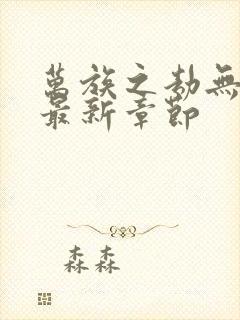 萬族之劫無
最新章節
森森